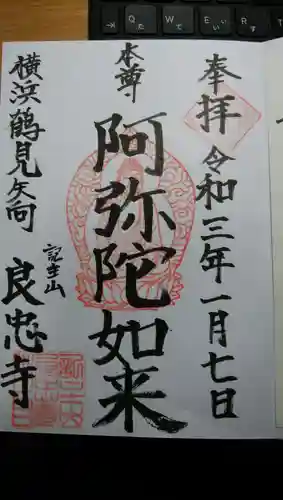 奉拝 令和三年一月七日
本尊
阿弥陀如来
横浜鶴見矢向
記主山
良忠寺
Q た
W て
E い
R す